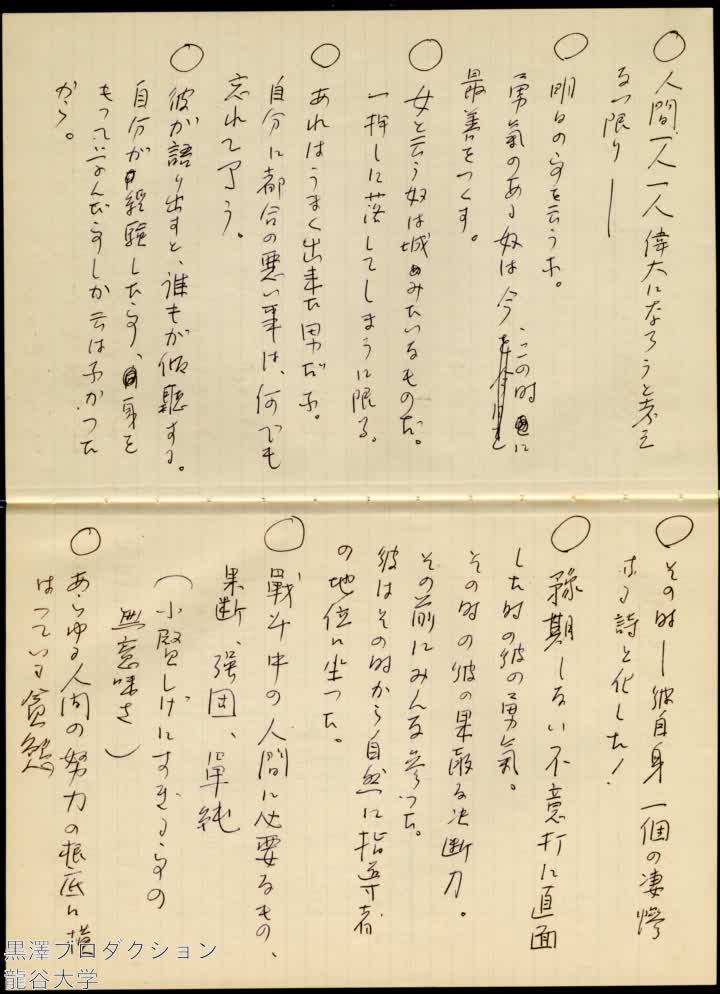 ○ 人間一人一人偉大になろうと考え
る限り――
○ 明日の事を云うな。
勇氣のある奴は今、この時に
最善をつくす。
○ 女と云う奴は城みたいなものだ。
一押しに落してしまうに限る。
○ あれはうまく出来た男だな。
自分に都合の悪い事は、何でも
忘れて了う。
○ 彼が語り出すと、誰もが傾聴する。
自分が経験した事、身を
もって学んだ事しか云はなかった
から。
○ その時―彼自身一個の凄愴
なる詩と化した!
○ 豫期しない不意打に直面
した時の彼の勇氣。
その時の彼の果敢な決断力。
その前にみんな参った。
彼はその時から自然に指導者
の地位に坐った。
○ 戦斗中の人間に必要なもの、
果断、強固、単純
(小賢しげにすぎる事の
無意味さ)
○ あらゆる人間の努力の根底に横
はっている貪慾
黒澤プロダクション
龍谷大学